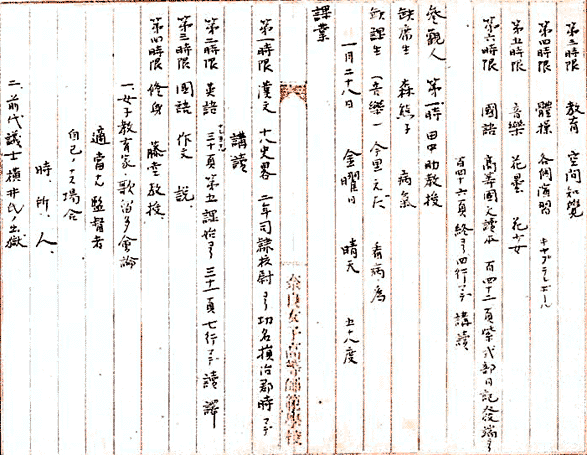 第三時限 教育 空間知覺
第四時限 體操 各個演習 キャプテンボール
第五時限 音樂 花墨 花少女
第六時限 國語 高等國文讀本 百四十二頁紫式部日記發端ヨリ
百四十六頁終ヨリ四行マデ 講讀
參觀人 第一時 田中助教授
缺席生 森 子 病氣
缺課生 (音樂) 今里 看病爲
一月二十八日 金曜日 晴天 五十八度
課業
奈良女子高等師範學校
第一時限 漢文 十八史畧 二年司隸校尉ヨリ功名損治郡時マデ
講讀
第二時限 英語 三十頁第五課始ヨリ三十一頁七行マデ 讀譯
第三時限 國語 作文 説、
第四時限 修身 藤堂教授
一、女子教育家歌留多會論
適當ナル監督者
自己ノ 場合
時、所、人、
二、前代議士横井氏ノ出獄